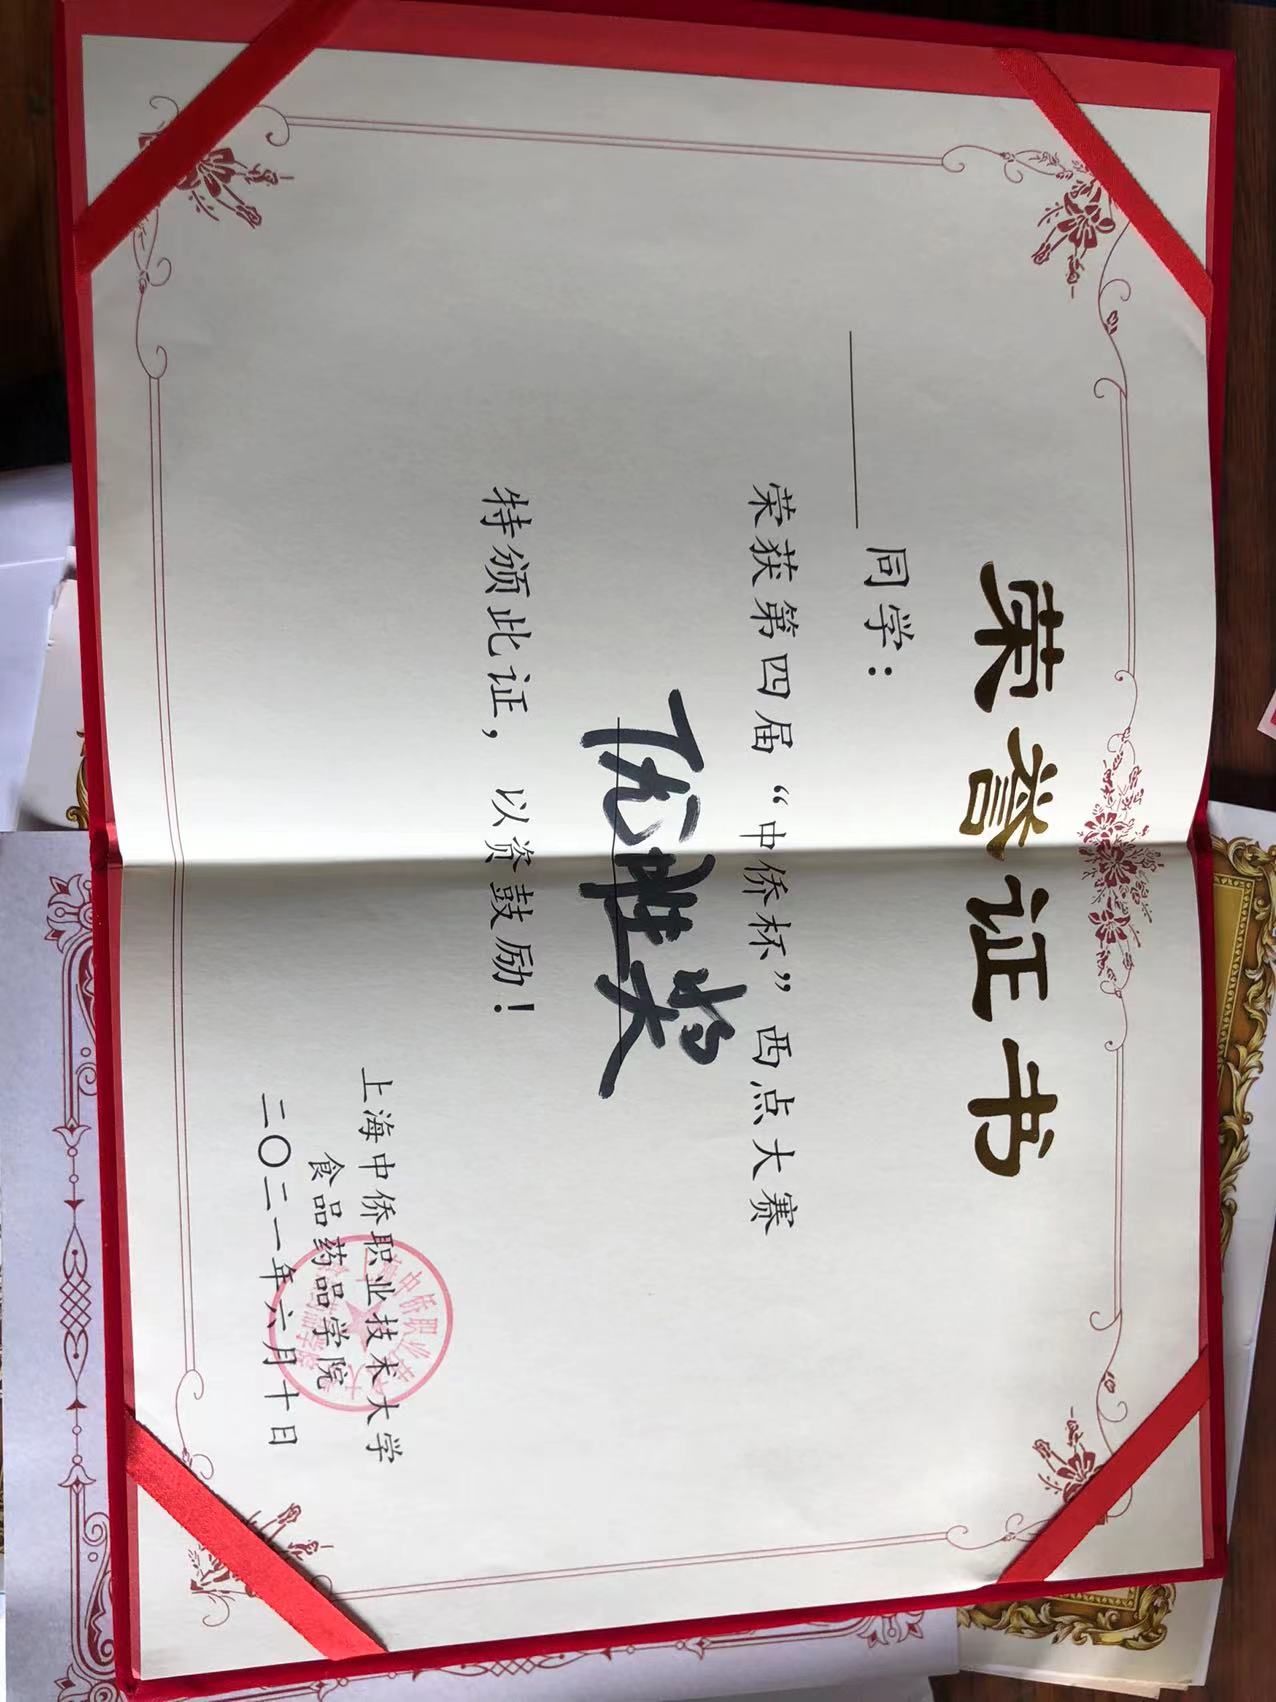 荣誉证书
同学：
荣获第四届“中侨杯”西点大赛
优胜奖
特颁此证，以资鼓励！
上海中侨职业技术大学
食品药品学院
二〇二一年六月十日